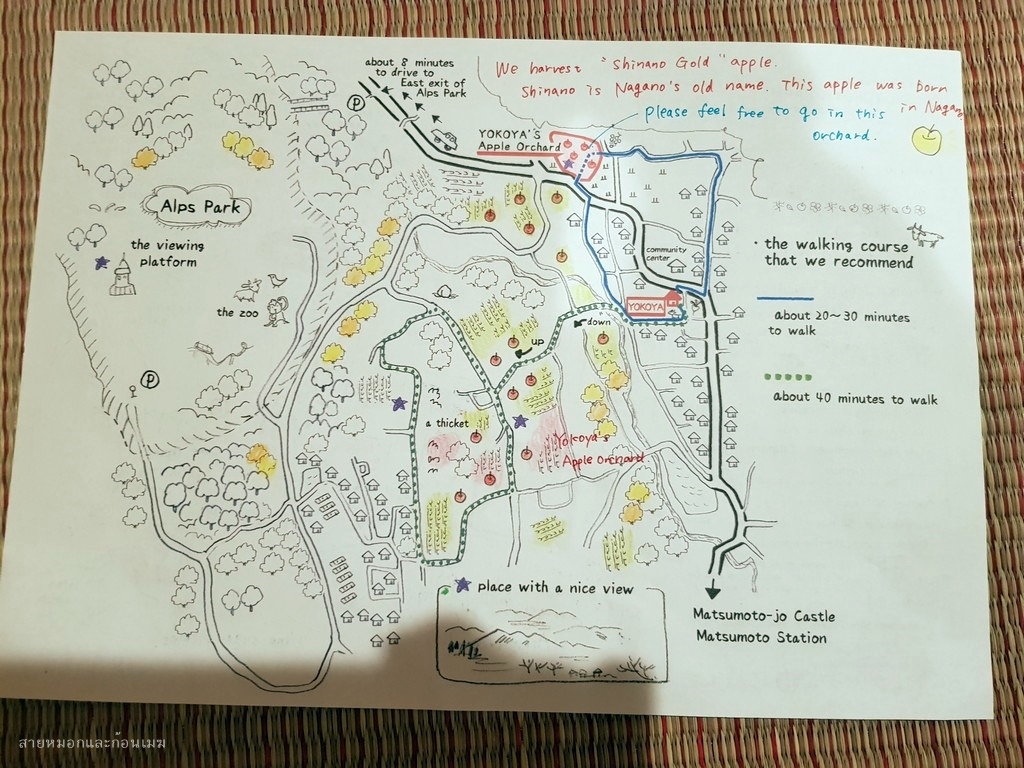 about 8 minutes
to drive to
East exit of
Alps Park
P
We harvest "Shinano Gold" apple.
Shinano is Nagano's old name. This apple was born
in Nagano
please feel free to go in this
orchard.
YOKOYA'S
Apple Orchard
Alps Park
the viewing
platform
the zoo
P
community
center
YOKOYA
down
up
a thicket
Yokoya's
Apple Orchard
· the walking course
that we recommend
about 20~30 minutes
to walk
about 40 minutes to walk
place with a nice view
Matsumoto-jo Castle
Matsumoto Station
สายหมอกและก้อนเมฆ